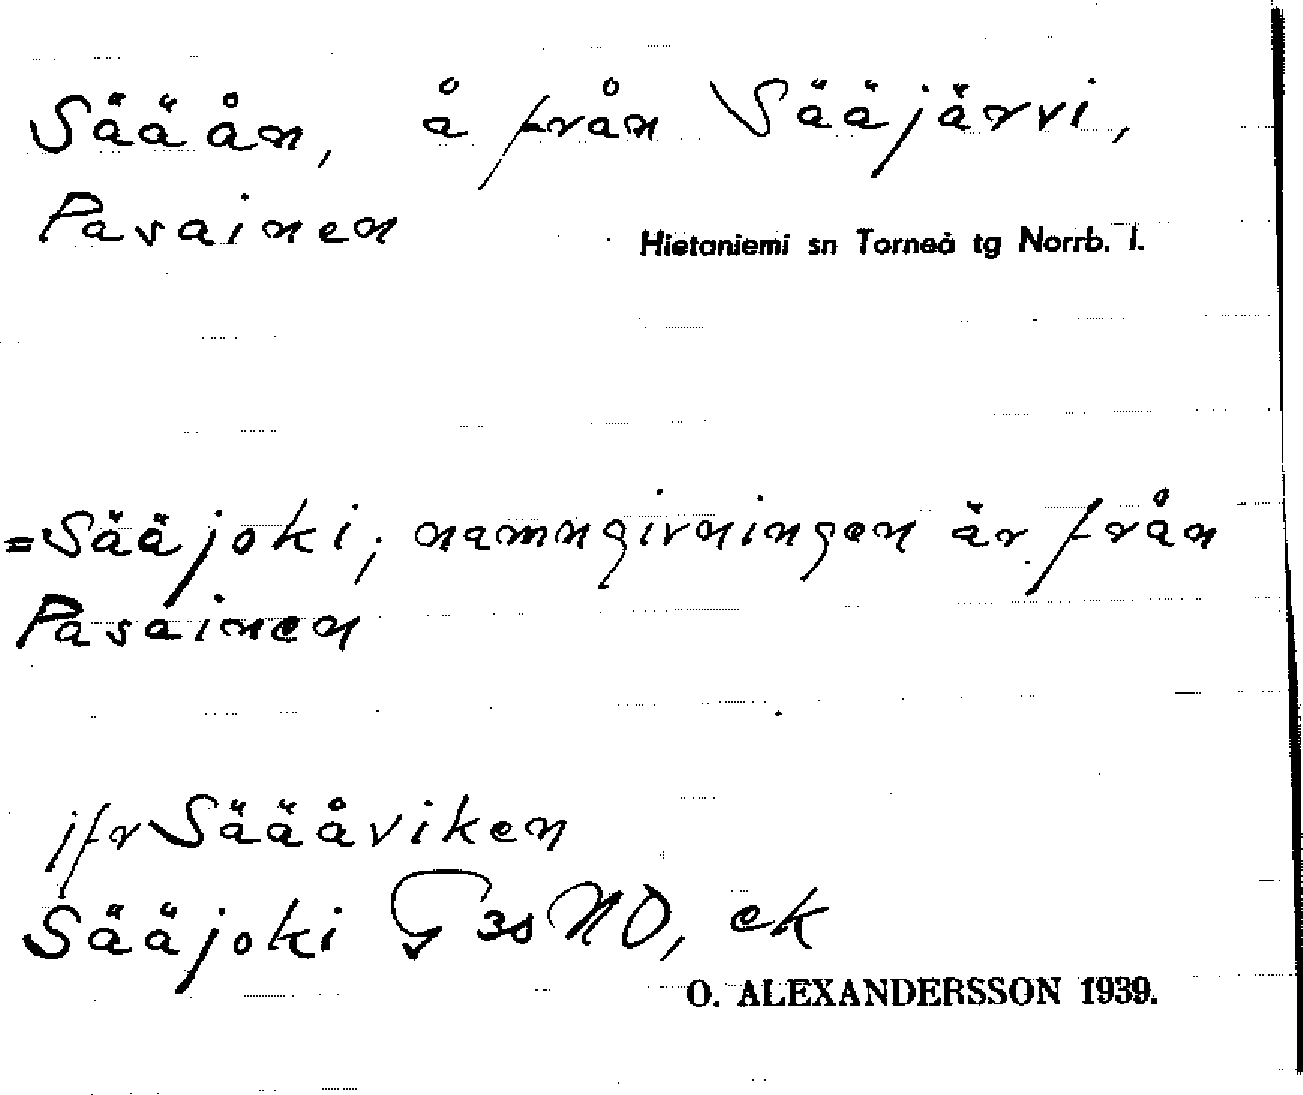 Sääån, å från Sääjärvi,
Pasainen
Hietaniemi sn Torneå tg Norrb. l.
=Sääjoki; namngivningen är från
Pasainen
jfr Sääåviken
Sääjoki G 3s NO, ek
O. ALEXANDERSSON 1939.